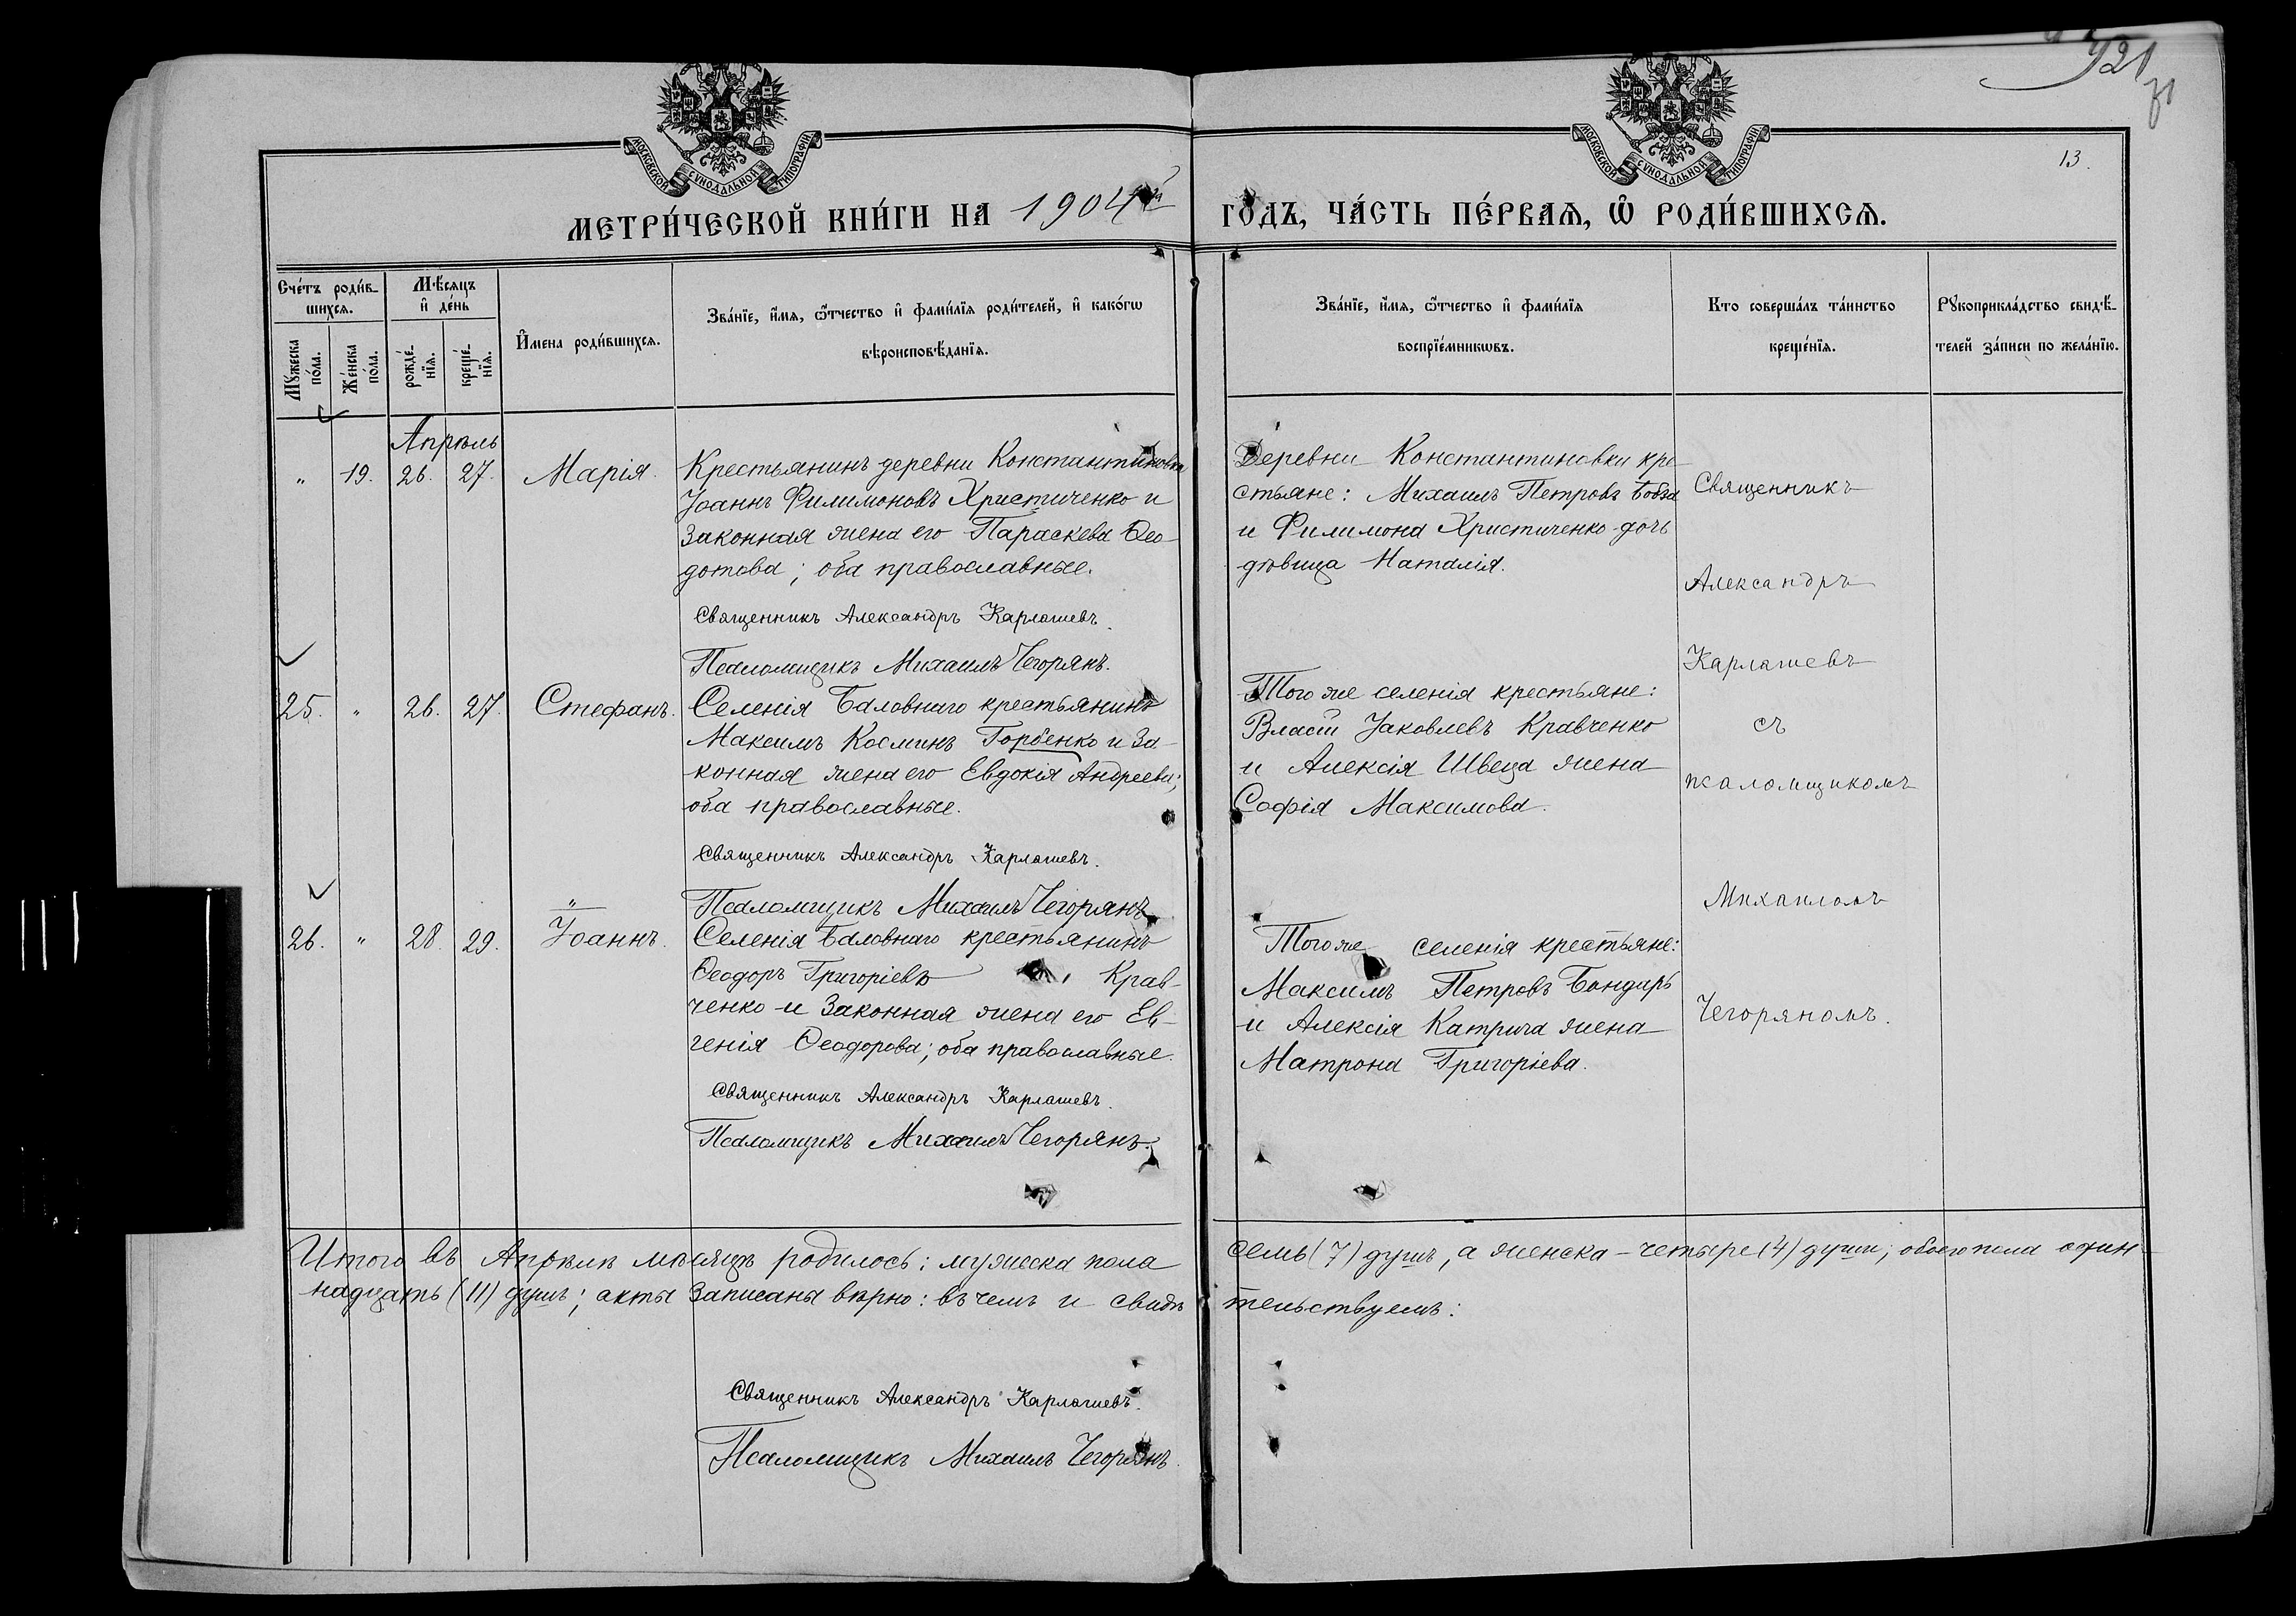 921
13.
МОСКОВСКОЙ СѴНОДАЛЬНОЙ ТИПОГРАФІИ
МОСКОВСКОЙ СѴНОДАЛЬНОЙ ТИПОГРАФІИ
МЕТРИ́ЧЕСКОЙ КНИ́ГИ НА 1904й ГО́ДЪ, ЧА́СТЬ ПЕ́РВАѦ, Ѽ РОДИ́ВШИХСѦ.
Сче́тъ роди́в-
шихсѧ.
Мꙋ́жеска
по́ла.
Же́нска
по́ла.
Мѣ́сѧцъ
и҆ де́нь
рожде́-
нїѧ.
креще́-
нїѧ.
И҆мена роди́вшихсѧ.
Зва́нїе, и҆́мѧ, ѻ҆́тчество и҆ фами́лїѧ роди́телей, и҆ како́гѡ
вѣроисповѣ́данїѧ.
Зва́нїе, и҆́мѧ, ѻ҆́тчество и҆ фами́лїѧ
воспрїе́мникѡвъ.
Кто соверша́лъ та́инство
креще́нїѧ.
Рꙋкоприкла́дство свидѣ́-
телей за́писи по жела́нїю.
Апрѣль
„ 19. 26. 27. Марія.
Крестьянинъ деревни Константиновки
Іоаннъ Филимоновъ Христиченко и
законная жена его Параскева Ѳео-
дотова; оба православные.
Священникъ Александръ Карлашевъ.
Псаломщикъ Михаилъ Чегорянъ.
Деревни Константиновки кре-
стьяне: Михаилъ Петровъ
и Филимона Христиченко дочь
дѣвица Наталія.
25. „ 26. 27. Стефанъ.
Селенія Баловнаго крестьянинъ
Максимъ Косминъ Горбенко и за-
конная жена его Евдокія Андреева;
оба православные.
Священникъ Александръ Карлашевъ.
Псаломщикъ Михаилъ Чегорянъ
Того же селенія крестьяне:
Власій Іаковлевъ Кравченко
и Алексія Швеца жена
Софія Максимова.
26. „ 28. 29. „ Іоаннъ.
Селенія Баловнаго крестьянинъ
Ѳеодоръ Григоріевъ Крав-
ченко и законная жена его Ев-
генія Ѳеодорова; оба православные.
Священникъ Александръ Карлашевъ.
Псаломщикъ Михаилъ Чегорянъ.
Того же селенія крестьяне:
Максимъ Петровъ Бондарь
и Алексія Катрича жена
Матрона Григоріева.
Священникъ
Александръ
Карлашевъ
съ
псаломщикомъ
Михаиломъ
Чегоряномъ.
Итого въ Апрѣлѣ мѣсяцѣ родилось: мужеска пола семь (7) душъ, а женска – четыре (4) души; обоего пола один-
надцать (11) душъ; акты записаны вѣрно: въ чемъ и свидѣтельствуемъ:
Священникъ Александръ Карлашевъ.
Псаломщикъ Михаилъ Чегорянъ.